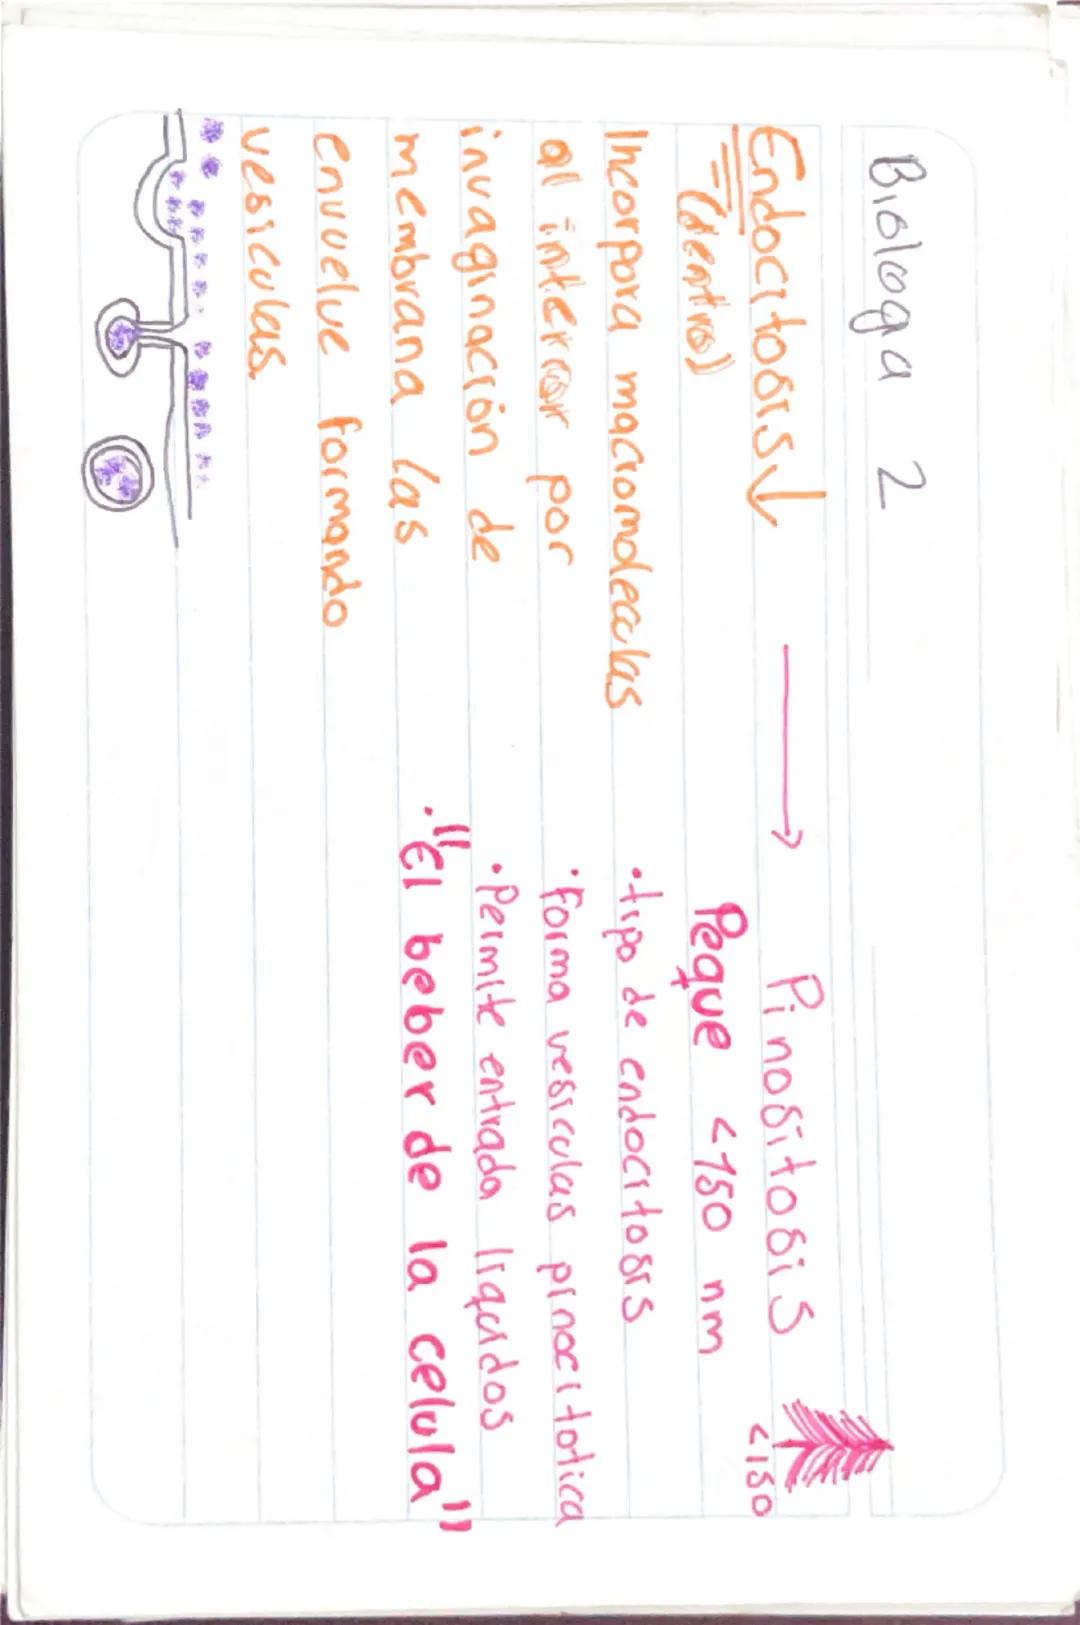 Biologa 2
Endocitosis↓ → Pinositosis
(dentro)
Peque <150 nm
<150
Incorpora macromoleculas
al interior por
invaginación de
membrana las
envuelve formando
vesiculas.
·tipo de endocitosis
·Forma vesiculas pinocitotica
·Permite entrada liquidos
·"El beber de la celula"